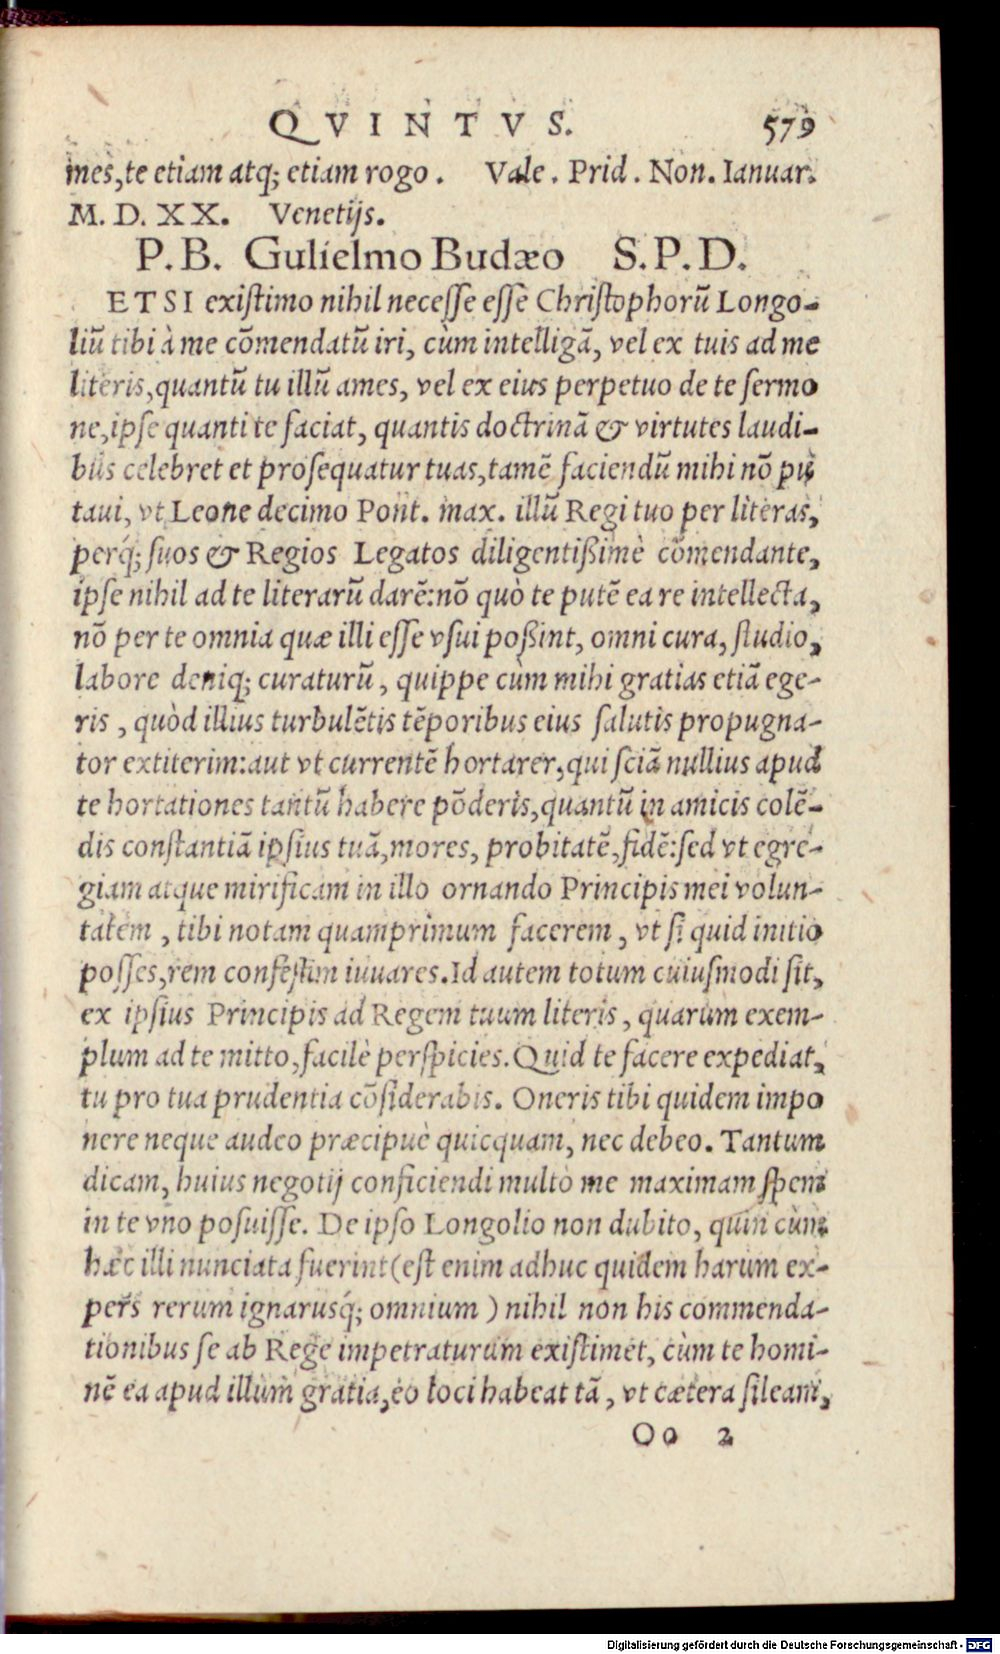 QVINTVS. 579
mes, te etiam atq; etiam rogo. Vale. Prid. Non. Ianuar.
M. D. XX. Venetijs.
P. B. Gulielmo Budæo S. P. D.
ETSI existimo nihil necesse esse Christophorū Longo-
liū tibi à me cōmendatū iri, cùm intelligā, vel ex tuis ad me
literis, quantū tu illū ames, vel ex eius perpetuo de te sermo
ne, ipse quanti te faciat, quantis doctrinā & virtutes laudi-
bus celebret et prosequatur tuas, tamē faciendū mihi nō pu
taui, vt Leone decimo Pont. max. illū Regi tuo per literas,
perq́; suos & Regios Legatos diligentißimè cōmendante,
ipse nihil ad te literarū darē: nō quò te putē ea re intellecta,
nō per te omnia quæ illi esse vsui poßint, omni cura, studio,
labore deniq; curaturū, quippe cùm mihi gratias etiā ege-
ris, quòd illius turbulētis tēporibus eius salutis propugna-
tor extiterim: aut vt currentē hortarer, qui sciā nullius apud
te hortationes tantū habere pōderis, quantū in amicis colē-
dis constantiā ipsius tuā, mores, probitatē, fidē: sed vt egre-
giam atque mirificam in illo ornando Principis mei volun-
tatem, tibi notam quamprimum facerem, vt si quid initio
posses, rem confestim iuuares. Id autem totum cuiusmodi sit,
ex ipsius Principis ad Regem tuum literis, quarum exem-
plum ad te mitto, facilè perspicies. Quid te facere expediat,
tu pro tua prudentia cōsiderabis. Oneris tibi quidem impo
nere neque audeo præcipuè quicquam, nec debeo. Tantum
dicam, huius negotij conficiendi multò me maximam spem
in te vno posuisse. De ipso Longolio non dubito, quin cùm
hæc illi nunciata fuerint (est enim adhuc quidem harum ex-
pers rerum ignarusq́; omnium) nihil non his commenda-
tionibus se ab Rege impetraturum existimet, cùm te homi-
nē ea apud illum gratia, eo loci habeat tā, vt cætera sileam,
Oo 2
Digitalisierung gefördert durch die Deutsche Forschungsgemeinschaft - DFG